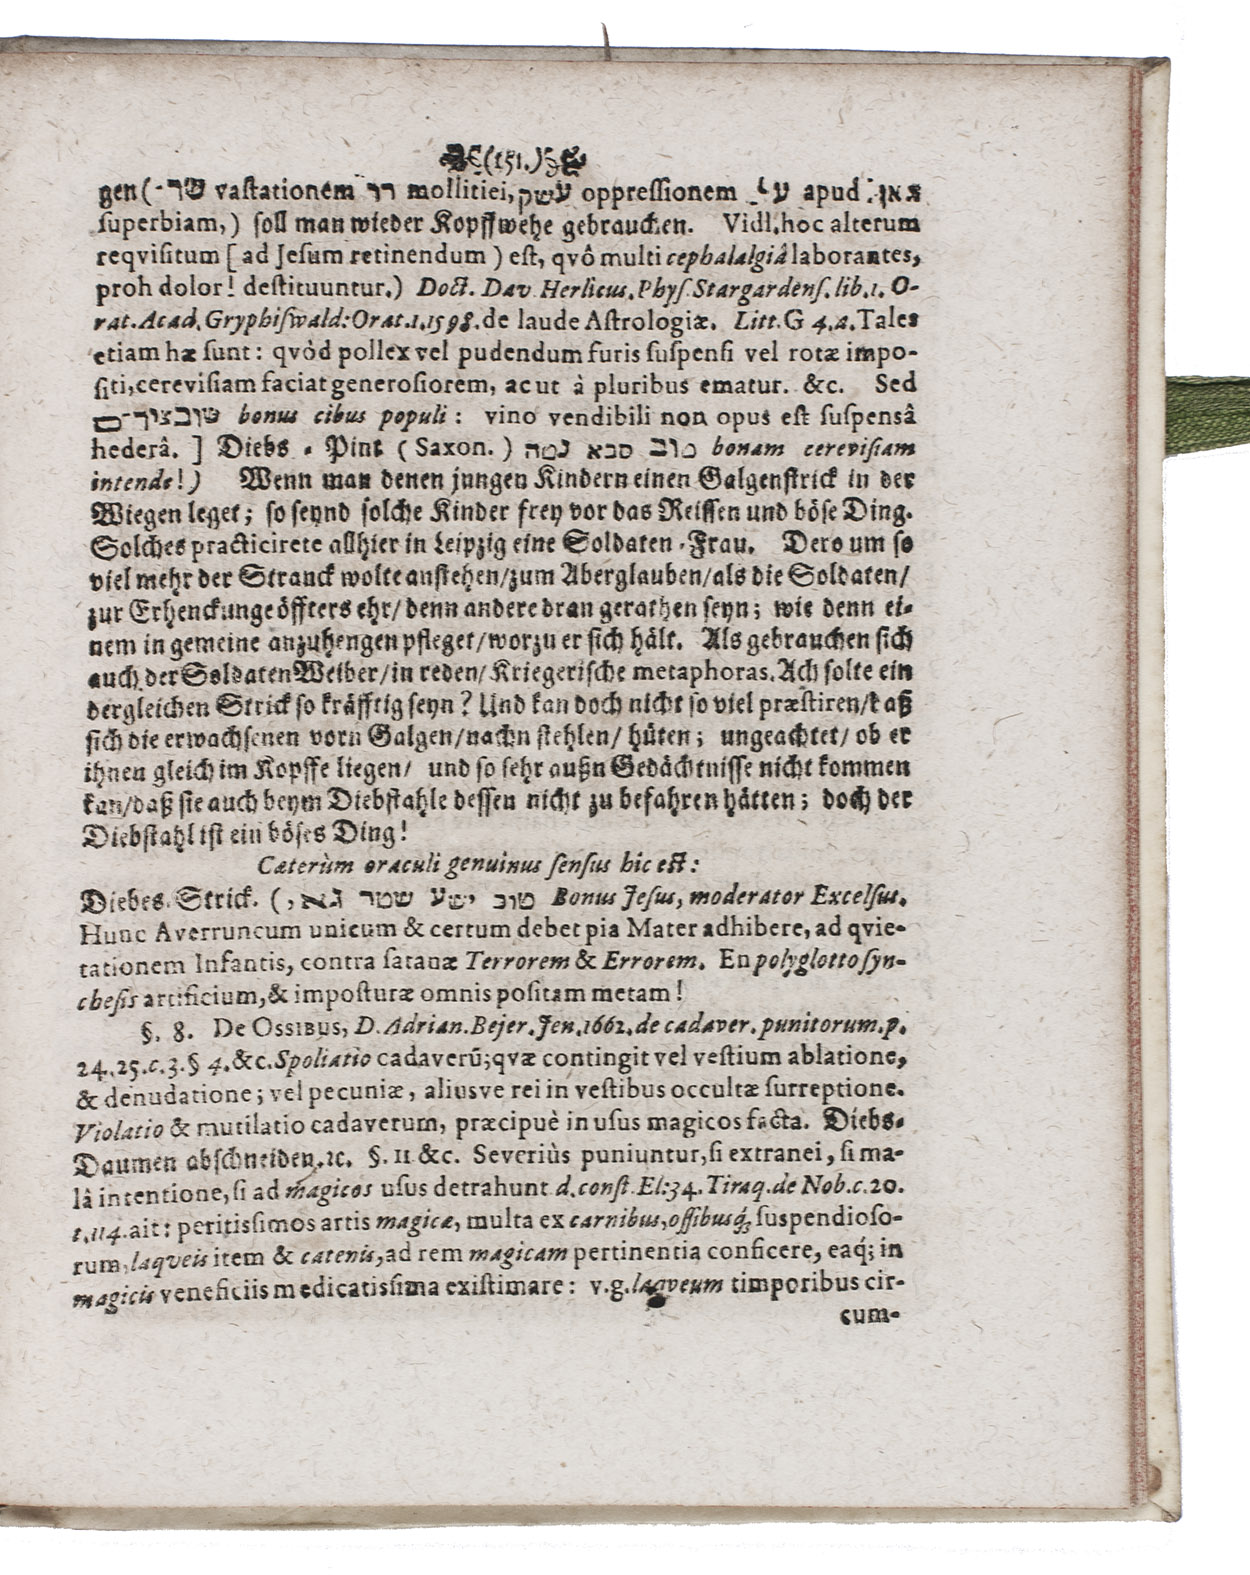 (151.)
gen (-שד vastationem רך mollitiei, עשק oppressionem על apud גאון:
superbiam,) soll man wieder Kopffwehe gebrauchen. Vidl. hoc alterum
reqvisitum [ ad Jesum retinendum ) est, qvô multi cephalalgiâ laborantes,
proh dolor! destituuntur.) Doct. Dav. Herlicus. Phys. Stargardens. lib. 1. O-
rat. Acad. Gryphiswald: Orat. 1. 1598. de laude Astrologiæ. Litt. G 4. a. Tales
etiam hæ sunt: qvòd pollex vel pudendum furis suspensi vel rotæ impo-
siti, cerevisiam faciat generosiorem, ac ut à pluribus ematur. &c. Sed
bonus cibus populi: vino vendibili non opus est suspensâ
hederâ. ] Diebs - Pint ( Saxon. ) טוב סבא נטה bonam cerevisiam
intende!) Wenn man denen jungen Kindern einen Galgenstrick in der
Wiegen leget; so seynd solche Kinder frey vor das Reissen und böse Ding.
Solches practicirete allhier in Leipzig eine Soldaten-Frau. Dero um so
viel mehr der Stranck wolte anstehen/zum Aberglauben/als die Soldaten/
zur Erhenckunge öffters ehr/ denn andere dran gerathen seyn; wie denn ei-
nem in gemeine anzuhengen pfleget/worzu er sich hält. Als gebrauchen sich
auch der Soldaten Weiber/in reden/ Kriegerische metaphoras. Ach solte ein
dergleichen Strick so kräfftig seyn? Und kan doch nicht so viel præstiren/daß
sich die erwachsenen vorn Galgen/nachn stehlen/ hüten; ungeachtet/ ob er
ihnen gleich im Kopffe liegen/ und so sehr außn Gedächtnisse nicht kommen
kan/daß sie auch beym Diebstahle dessen nicht zu befahren hätten; doch der
Diebstahl ist ein böses Ding!
Cæterùm oraculi genuinus sensus hic est:
Diebes-Strick. (טוב ישע שטר גאי, Bonus Jesus, moderator Excelsus.
Hunc Averruncum unicum & certum debet pia Mater adhibere, ad qvie-
tationem Infantis, contra satanæ Terrorem & Errorem. En polyglotto syn-
chesis artificium, & imposturæ omnis positam metam!
§. 8. De Ossibus, D. Adrian. Bejer. Jen. 1662. de cadaver. punitorum. p.
24. 25. c. 3. § 4. &c. Spoliatio cadaverū; qvæ contingit vel vestium ablatione,
& denudatione; vel pecuniæ, aliusve rei in vestibus occultæ surreptione.
Violatio & mutilatio cadaverum, præcipuè in usus magicos facta. Diebs-
Daumen abschneiden. ꝛc. §. 11 &c. Severiùs puniuntur, si extranei, si ma-
lâ intentione, si ad magicos usus detrahunt d. const. El: 34. Tiraq. de Nob. c. 20.
t. 114. ait: peritissimos artis magicæ, multa ex carnibus, ossibusq́; suspendioso-
rum, laqveis item & catenis, ad rem magicam pertinentia conficere, eaq́; in
magicis veneficiis medicatissima existimare: v. g. laqveum timporibus cir-
cum-